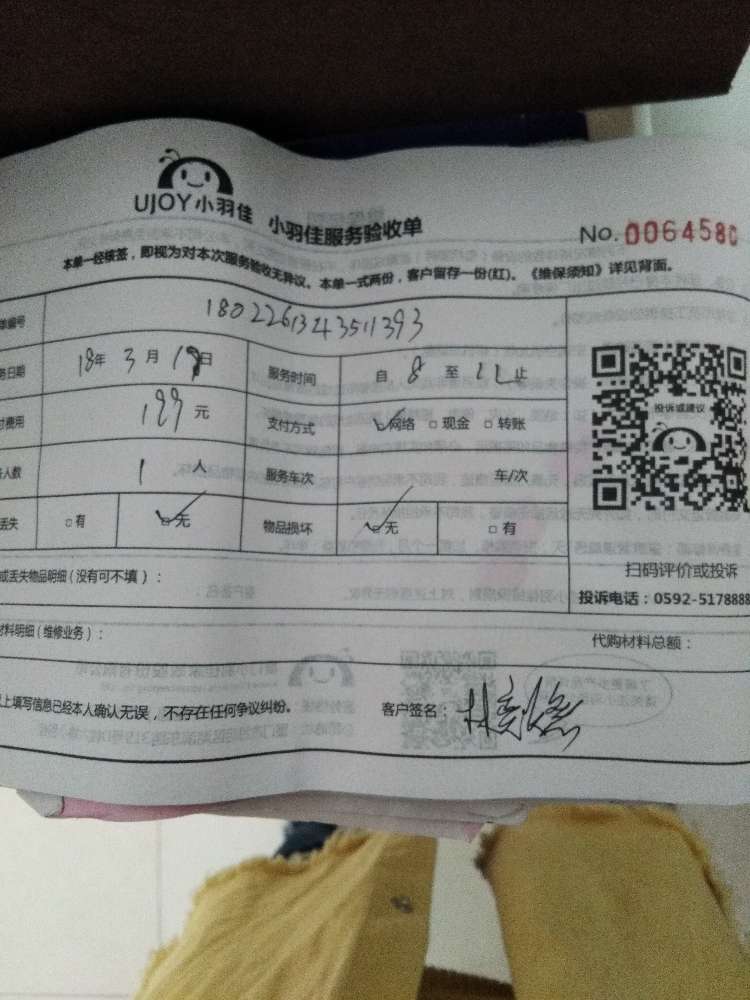 UJOY小羽佳 小羽佳服务验收单
No. 0064580
本单一经核签，即视为对本次服务验收无异议。本单一式两份，客户留存一份(红)。《维保须知》详见背面。
单编号 1802261343511393
务日期 18年3月19日 服务时间 自8至12止
付费用 199元 支付方式 网络 现金 转账
务人数 1人 服务车次 车/次
丢失 有 无 物品损坏 无 有
投诉或建议
扫码评价或投诉
投诉电话：0592-5178888
或丢失物品明细(没有可不填)：
材料明细(维修业务)： 代购材料总额：
以上填写信息已经本人确认无误，不存在任何争议纠纷。 客户签名：